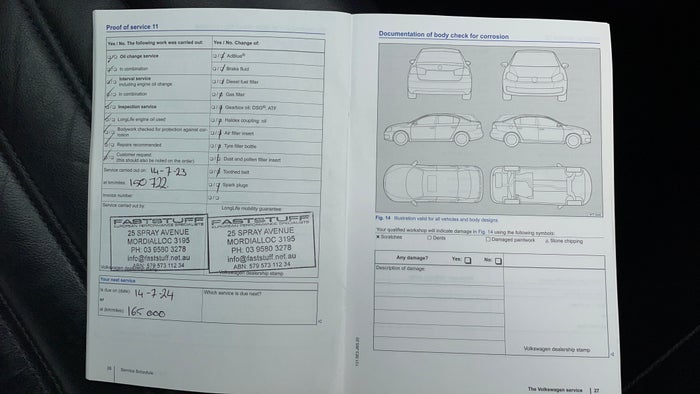 Proof of service 11
Yes / No. The following work was carried out:
Oil change service
In combination
Interval service
including engine oil change
In combination
Inspection service
LongLife engine oil used
Bodywork checked for protection against cor-
rosion
Repairs recommended
Customer request
(this should also be noted on the order)
Service carried out on: 14-7-23
at km/miles: 150 722
Invoice number:
Service carried out by:
Yes / No. Change of:
AdBlue®
Brake fluid
Diesel fuel filter
Gas filter
Gearbox oil: DSG®, ATF
Haldex coupling: oil
Air filter insert
Tyre filler bottle
Dust and pollen filter insert
Toothed belt
Spark plugs
LongLife mobility guarantee:
FASTSTUFF
EUROPEAN PERFORMANCE SPECIALISTS
25 SPRAY AVENUE
MORDIALLOC 3195
PH: 03 9580 3278
info@faststuff.net.au
ABN: 579 573 112 34
Volkswagen dealership
FASTSTUFF
EUROPEAN PERFORMANCE SPECIALISTS
25 SPRAY AVENUE
MORDIALLOC 3195
PH: 03 9580 3278
info@faststuff.net.au
ABN: 579 573 112 34
Volkswagen dealership stamp
Your next service
Is due on (date): 14-7-24
or
at (km/miles): 165 000
Which service is due next?
26 Service Schedule
Documentation of body check for corrosion
Fig. 14 Illustration valid for all vehicles and body designs.
Your qualified workshop will indicate damage in Fig. 14 using the following symbols:
× Scratches □ Dents □ Damaged paintwork △ Stone chipping
Any damage? Yes: □ No: □
Description of damage:
Volkswagen dealership stamp
The Volkswagen service 27